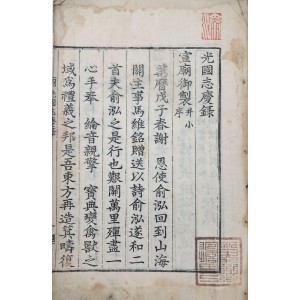 光國志慶錄
宣廟御製并小序
萬曆戊子春謝 恩使俞泓回到山海
關主事馬維銘贈送以詩俞泓遂和二
首夫俞泓之是行也艱關萬里殫盡一
心手奉 綸音親擎 寶典變禽獸之
域爲禮義之邦是吾東方再造箕疇復